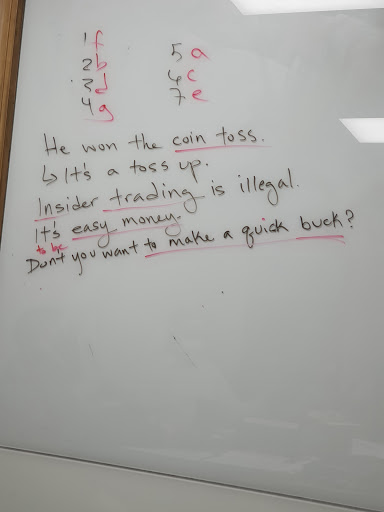 1 f
2 b
3 d
4 g
5 a
6 c
7 e
He won the coin toss.
↳ It's a toss up.
Insider trading is illegal.
It's easy money.
to be
Don't you want to make a quick buck?